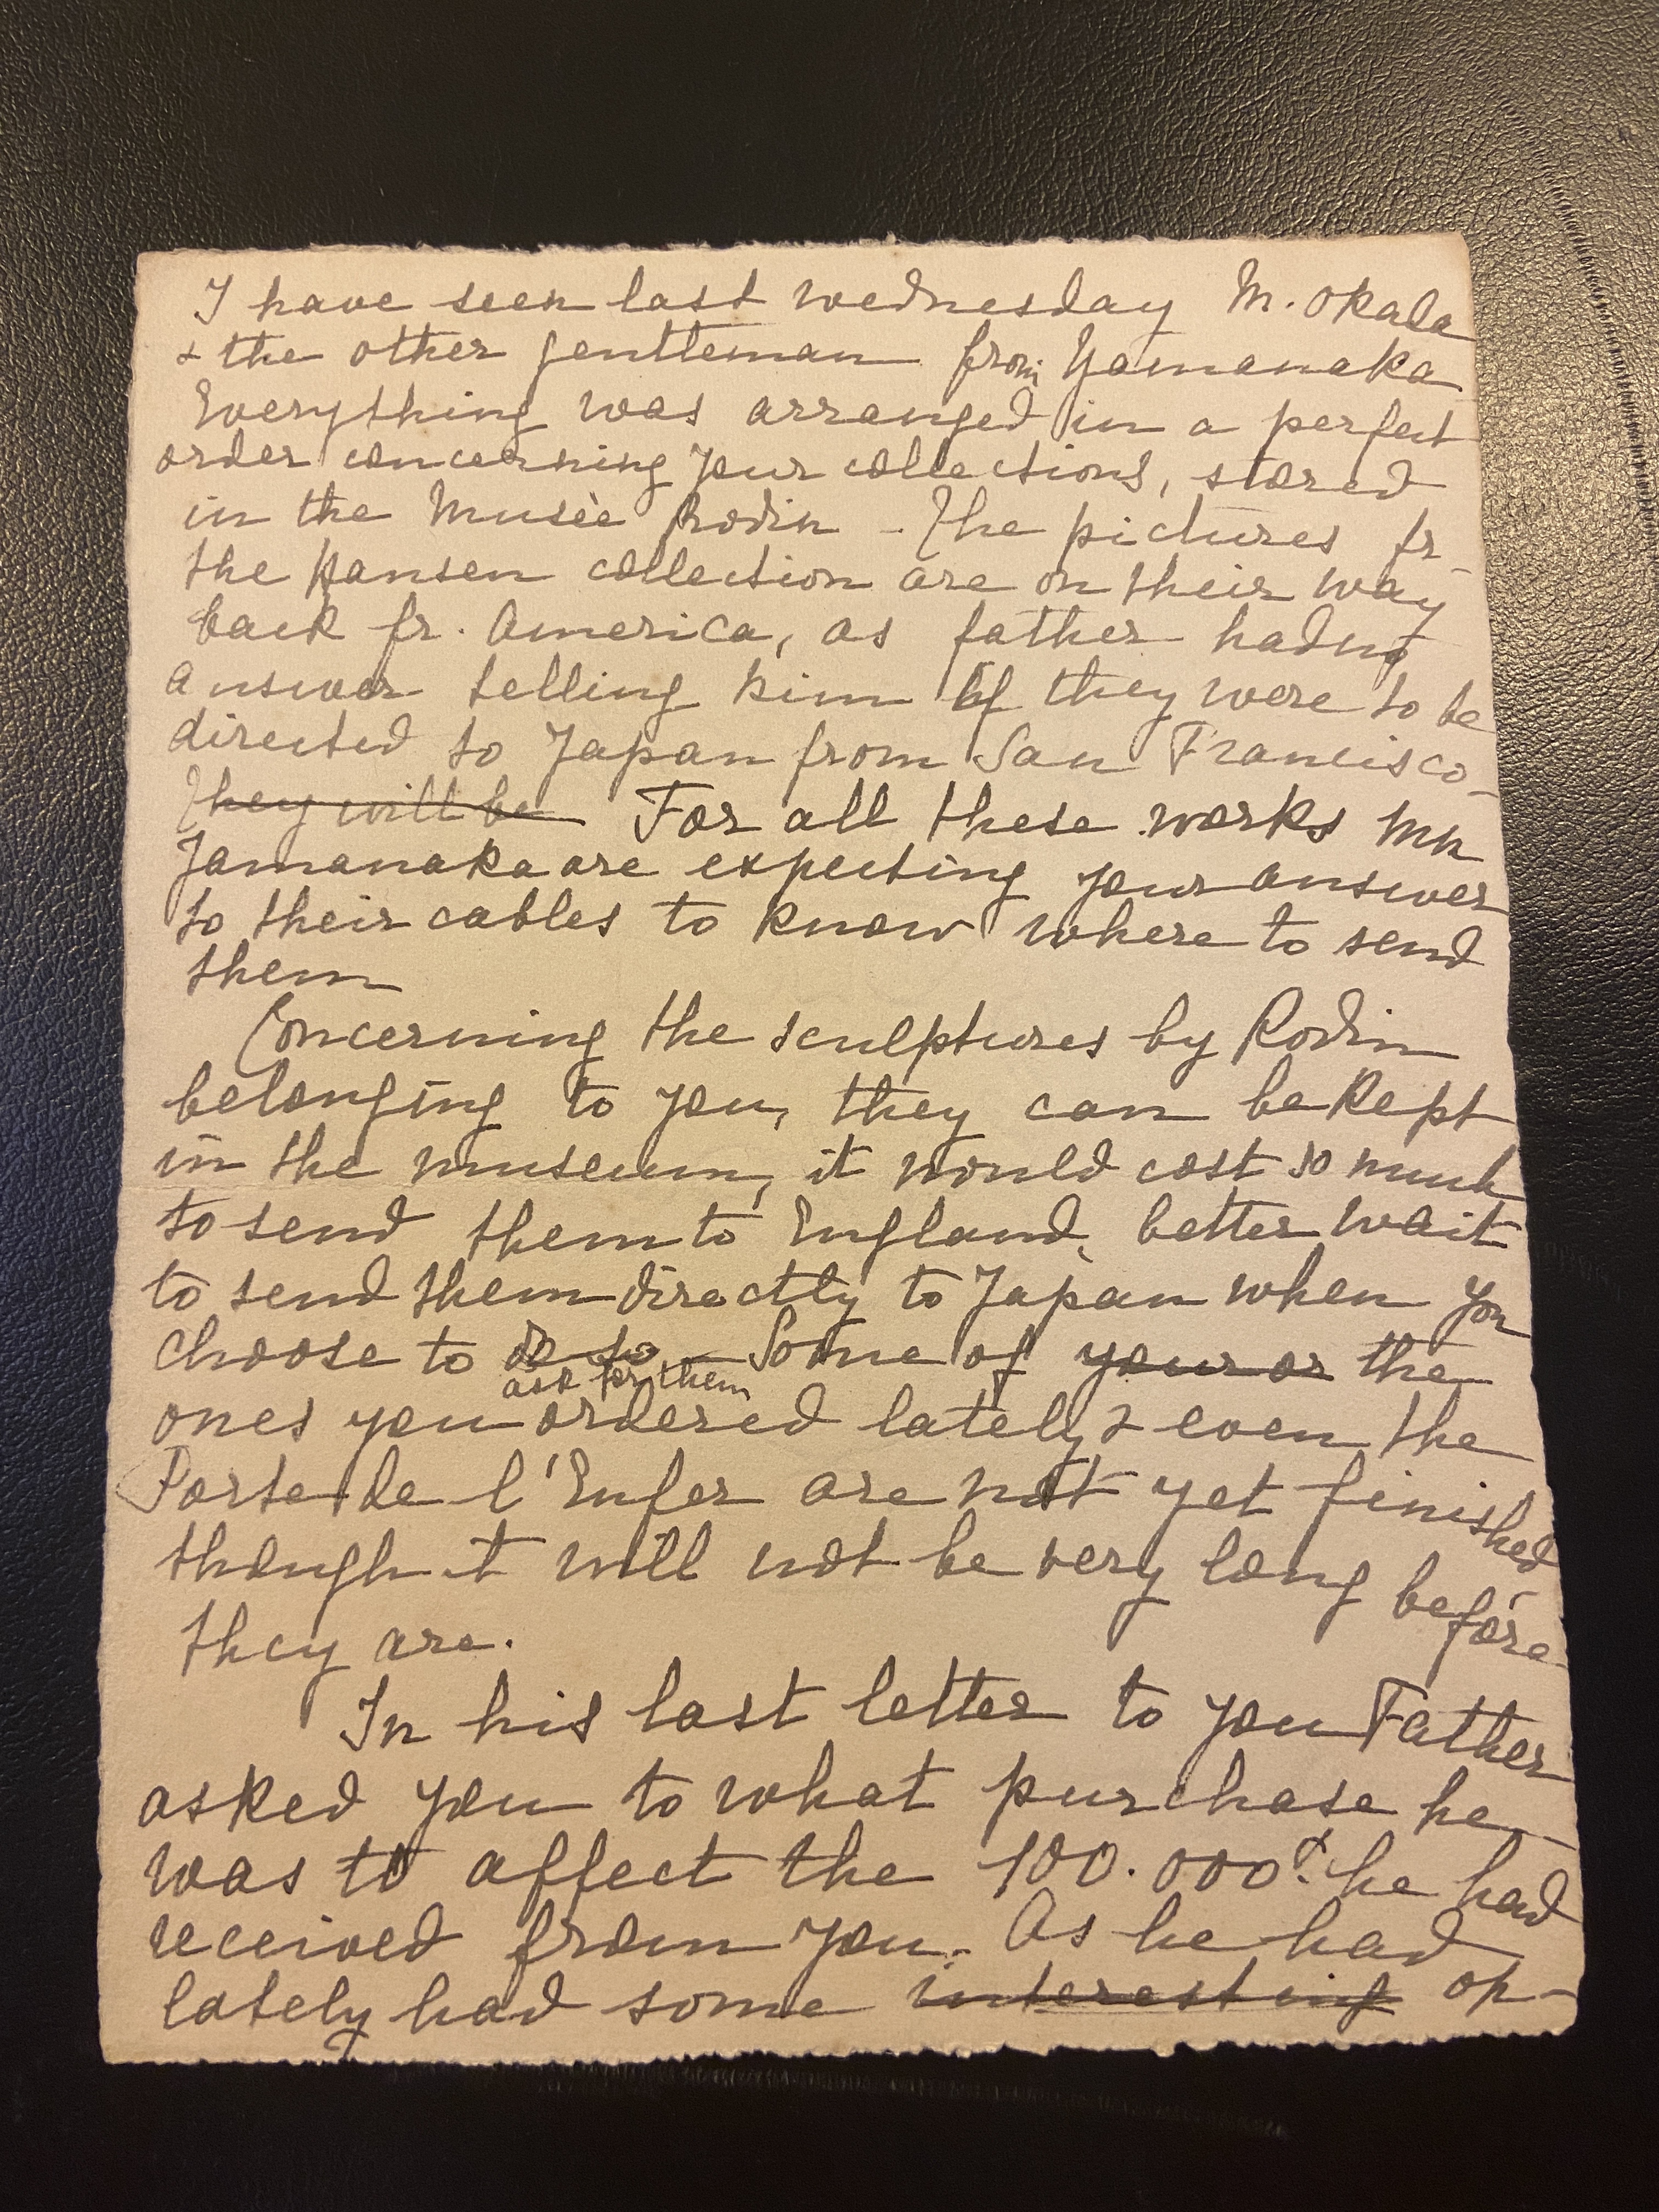 I have seen last wednesday M. Okada
& the other gentleman from Yamanaka
Everything was arranged in a perfect
order concerning your collections, stored
in the Musée Rodin - The pictures fr
the Hansen collection are on their way
back fr. America, as father had no
answer telling him if they were to be
directed to Japan from San Francisco -
They will be For all these works MM
Yamanaka are expecting your answer
to their cables to know where to send
them
Concerning the sculptures by Rodin
belonging to you, they can be kept
in the museum, it would cost so much
to send them to England, better wait
to send them directly to Japan when you
choose to do so - Some of your or the
ask for them
ones you ordered lately & even the
Porte de l'Enfer are not yet finished
though it will not be very long before
they are.
In his last letter to you Father
asked you to what purchase he
was to affect the 100.000 he had
received from you. As he had
lately had some interesting op-